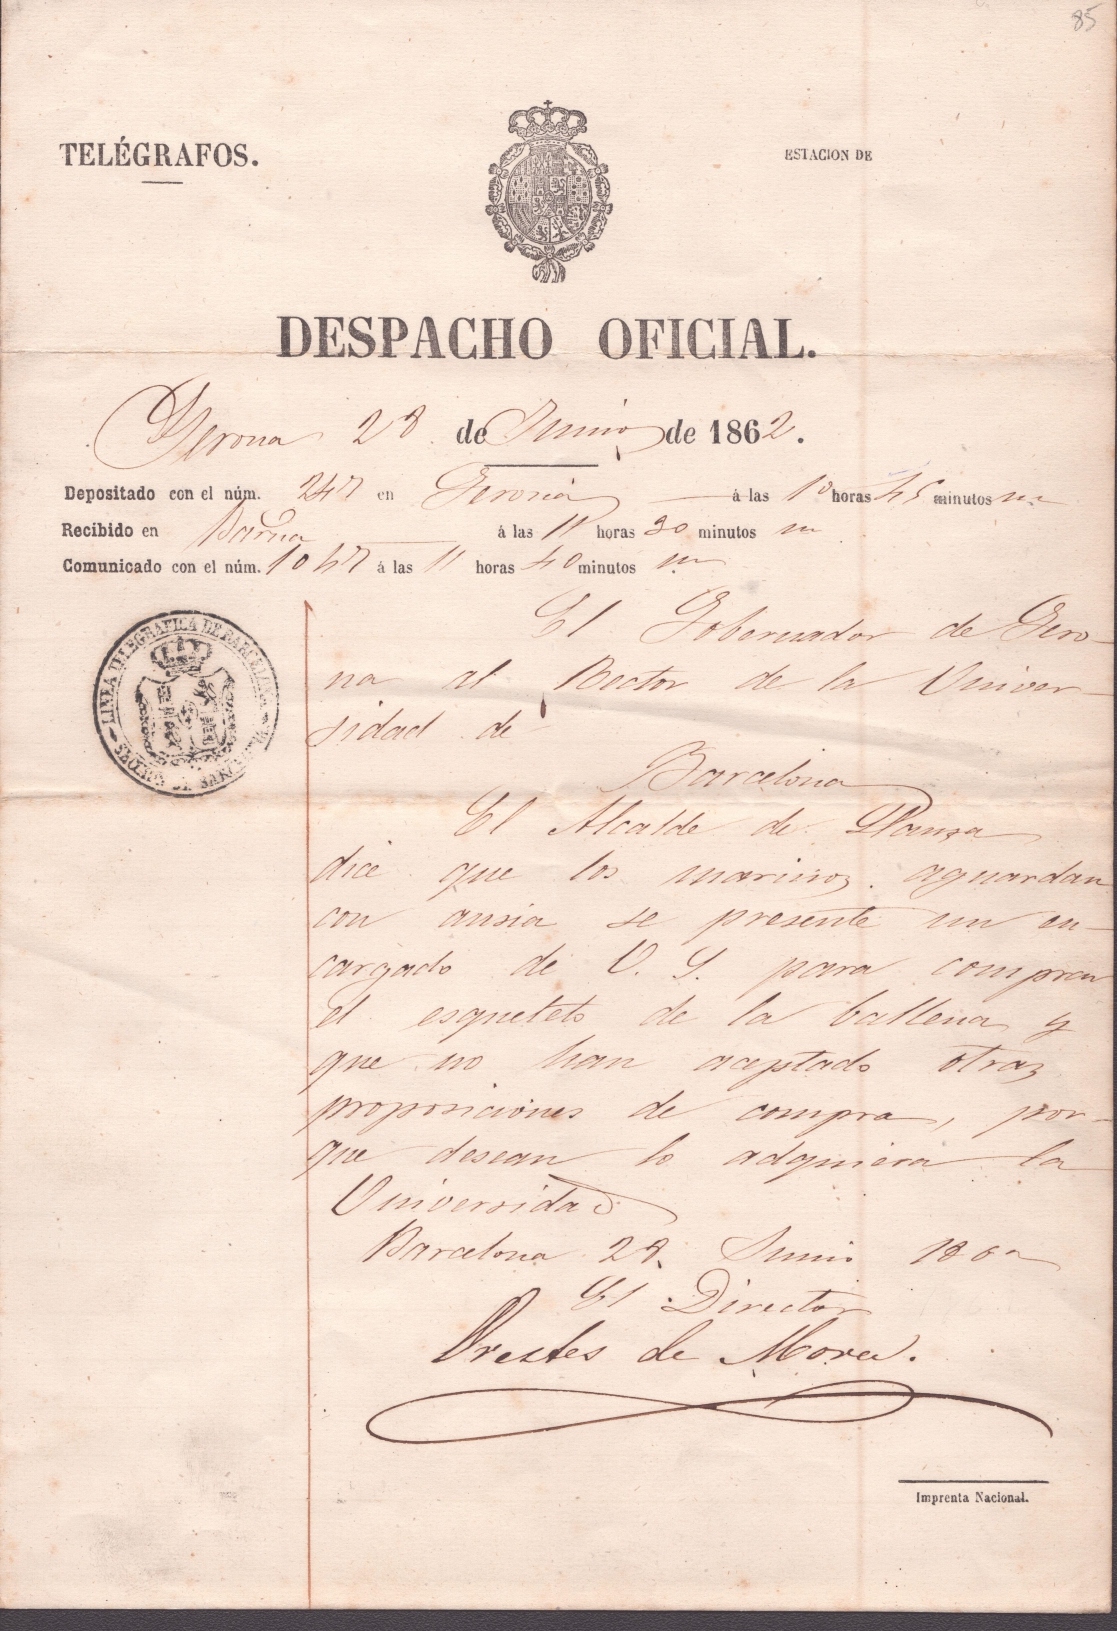 85
TELÉGRAFOS.
ESTACION DE
DESPACHO OFICIAL.
Gerona 28 de Junio de 1862.
Depositado con el núm. 247 en Gerona á las 10 horas 45 minutos m
Recibido en Barna á las 11 horas 30 minutos m
Comunicado con el núm. 1047 á las 11 horas 40 minutos m
LINEA TELEGRAFICA DE BARCELONA
SECCION DE BARCELONA
El Gobernador de Gero-
na al Rector de la Univer-
sidad de
Barcelona
El Alcalde de Llansa
dice que los marinos aguardan
con ansia se presente un en-
cargado de V. S. para comprar
el esqueleto de la ballena y
que no han aceptado otras
proposiciones de compra, por-
que desean lo adquiera la
Universidad
Barcelona 28 Junio 1862
El Director
Orestes de Mora.
Imprenta Nacional.